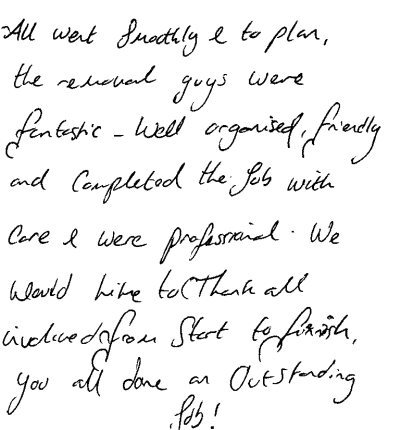 All went Smoothly & to plan,
the removal guys were
fantastic - Well organised, friendly
and Completed the Job with
Care & were professional. We
Would Like to Thank all
involved from Start to finish,
You all done an Outstanding
Job!